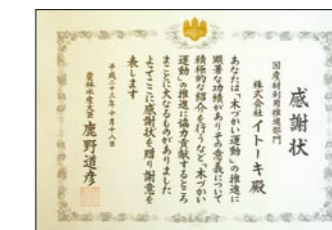 感謝状
国産材利用推進部門
株式会社イトーキ殿
あなたは「木づかい運動」の推進に
顕著な功績がありその意義について
積極的な紹介を行うなど、木づかい
運動」の推進に協力貢献するところ
まことに大なるものがありました
よってここに感謝状を贈り謝意を
表します
平成二十三年十月十八日
農林水産大臣 鹿野道彦